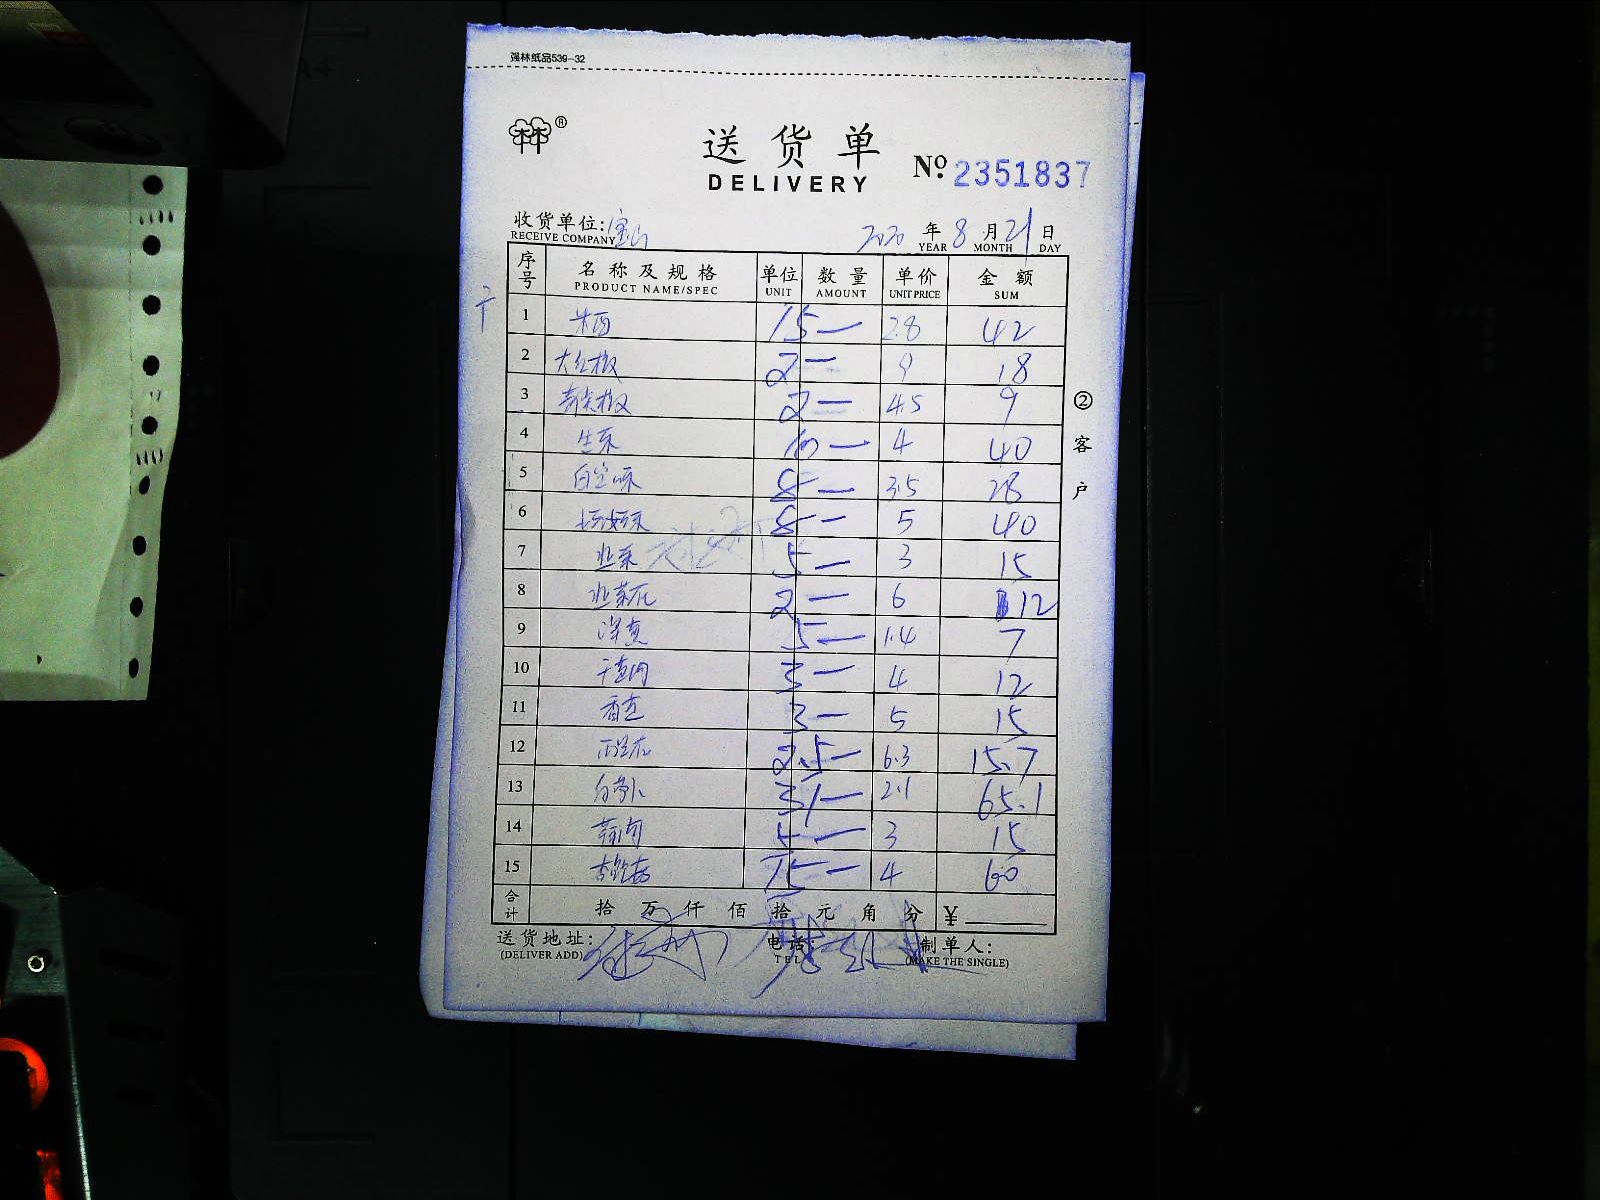 强林纸品539-32
送货单
DELIVERY
№ 2351837
收货单位: 宝山 2020 年 8 月 21 日
RECEIVE COMPANY YEAR MONTH DAY
序号 名称及规格 单位 数量 单价 金额
PRODUCT NAME/SPEC UNIT AMOUNT UNIT PRICE SUM
1 15 — 2.8 42
2 大红椒 2 — 9 18
3 青尖椒 2 — 4.5 9
4 生菜 10 — 4 40
5 8 — 3.5 28
6 8 — 5 40
7 韭菜 5 — 3 15
8 韭菜花 2 — 6 12
9 洋葱 5 — 1.4 7
10 3 — 4 12
11 3 — 5 15
12 西兰花 2.5 — 6.3 15.7
13 白萝卜 31 — 2.1 65.1
14 5 — 3 15
15 15 — 4 60
合计 拾 万 仟 佰 拾 元 角 分 ¥
送货地址: 电话: 制单人:
(DELIVER ADD) TEL (MAKE THE SINGLE)
②客户